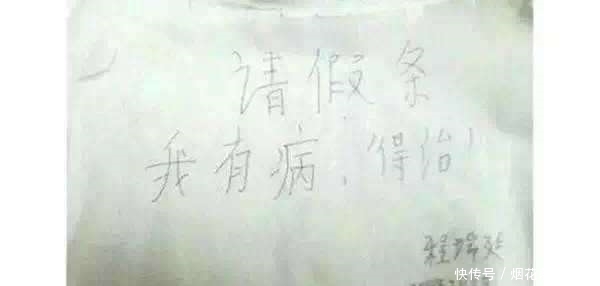 请假条
我有病，得治！
快传号/烟花